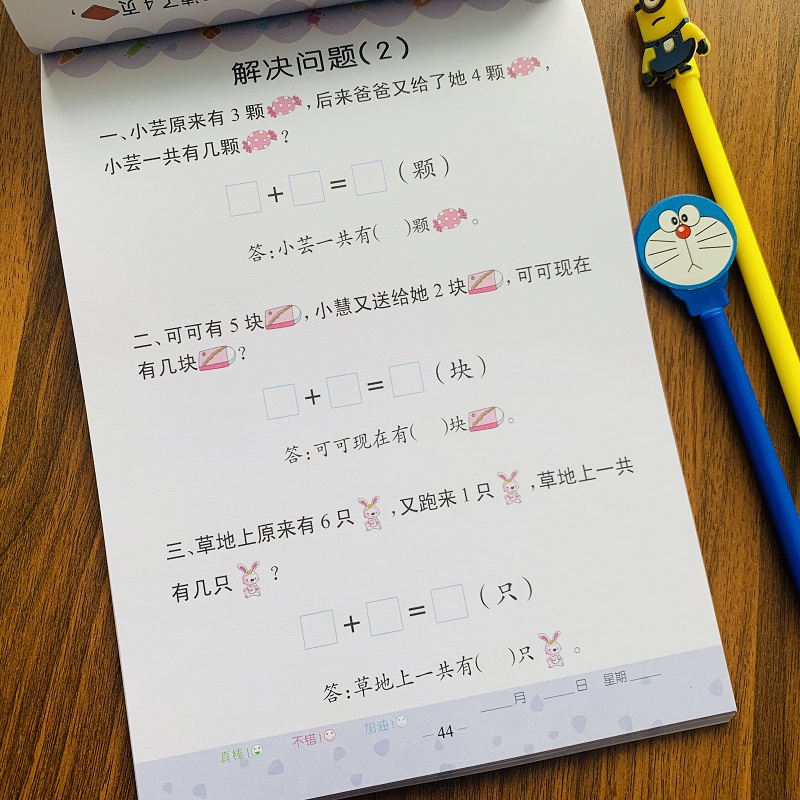 了4页
解决问题(2)
一、小芸原来有3颗,后来爸爸又给了她4颗,
小芸一共有几颗?
+ = (颗)
答:小芸一共有( )颗。
二、可可有5块,小慧又送给她2块,可可现在
有几块?
+ = (块)
答:可可现在有( )块。
三、草地上原来有6只,又跑来1只,草地上一共
有几只?
+ = (只)
答:草地上一共有( )只。
____月 ____日 星期____
真棒! 不错! 加油! 44